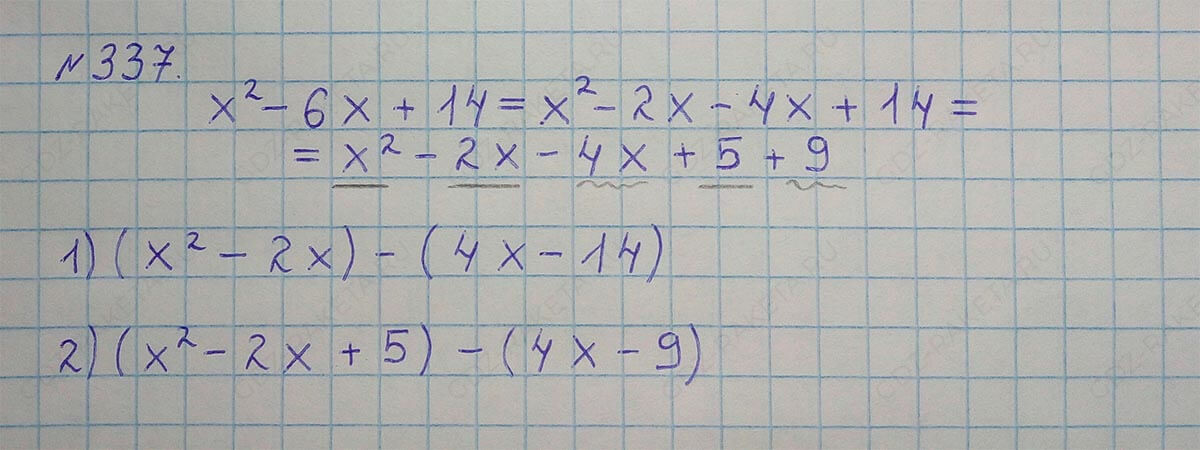 №337.
x² - 6x + 14 = x² - 2x - 4x + 14 =
= x² - 2x - 4x + 5 + 9
1) (x² - 2x) - (4x - 14)
2) (x² - 2x + 5) - (4x - 9)